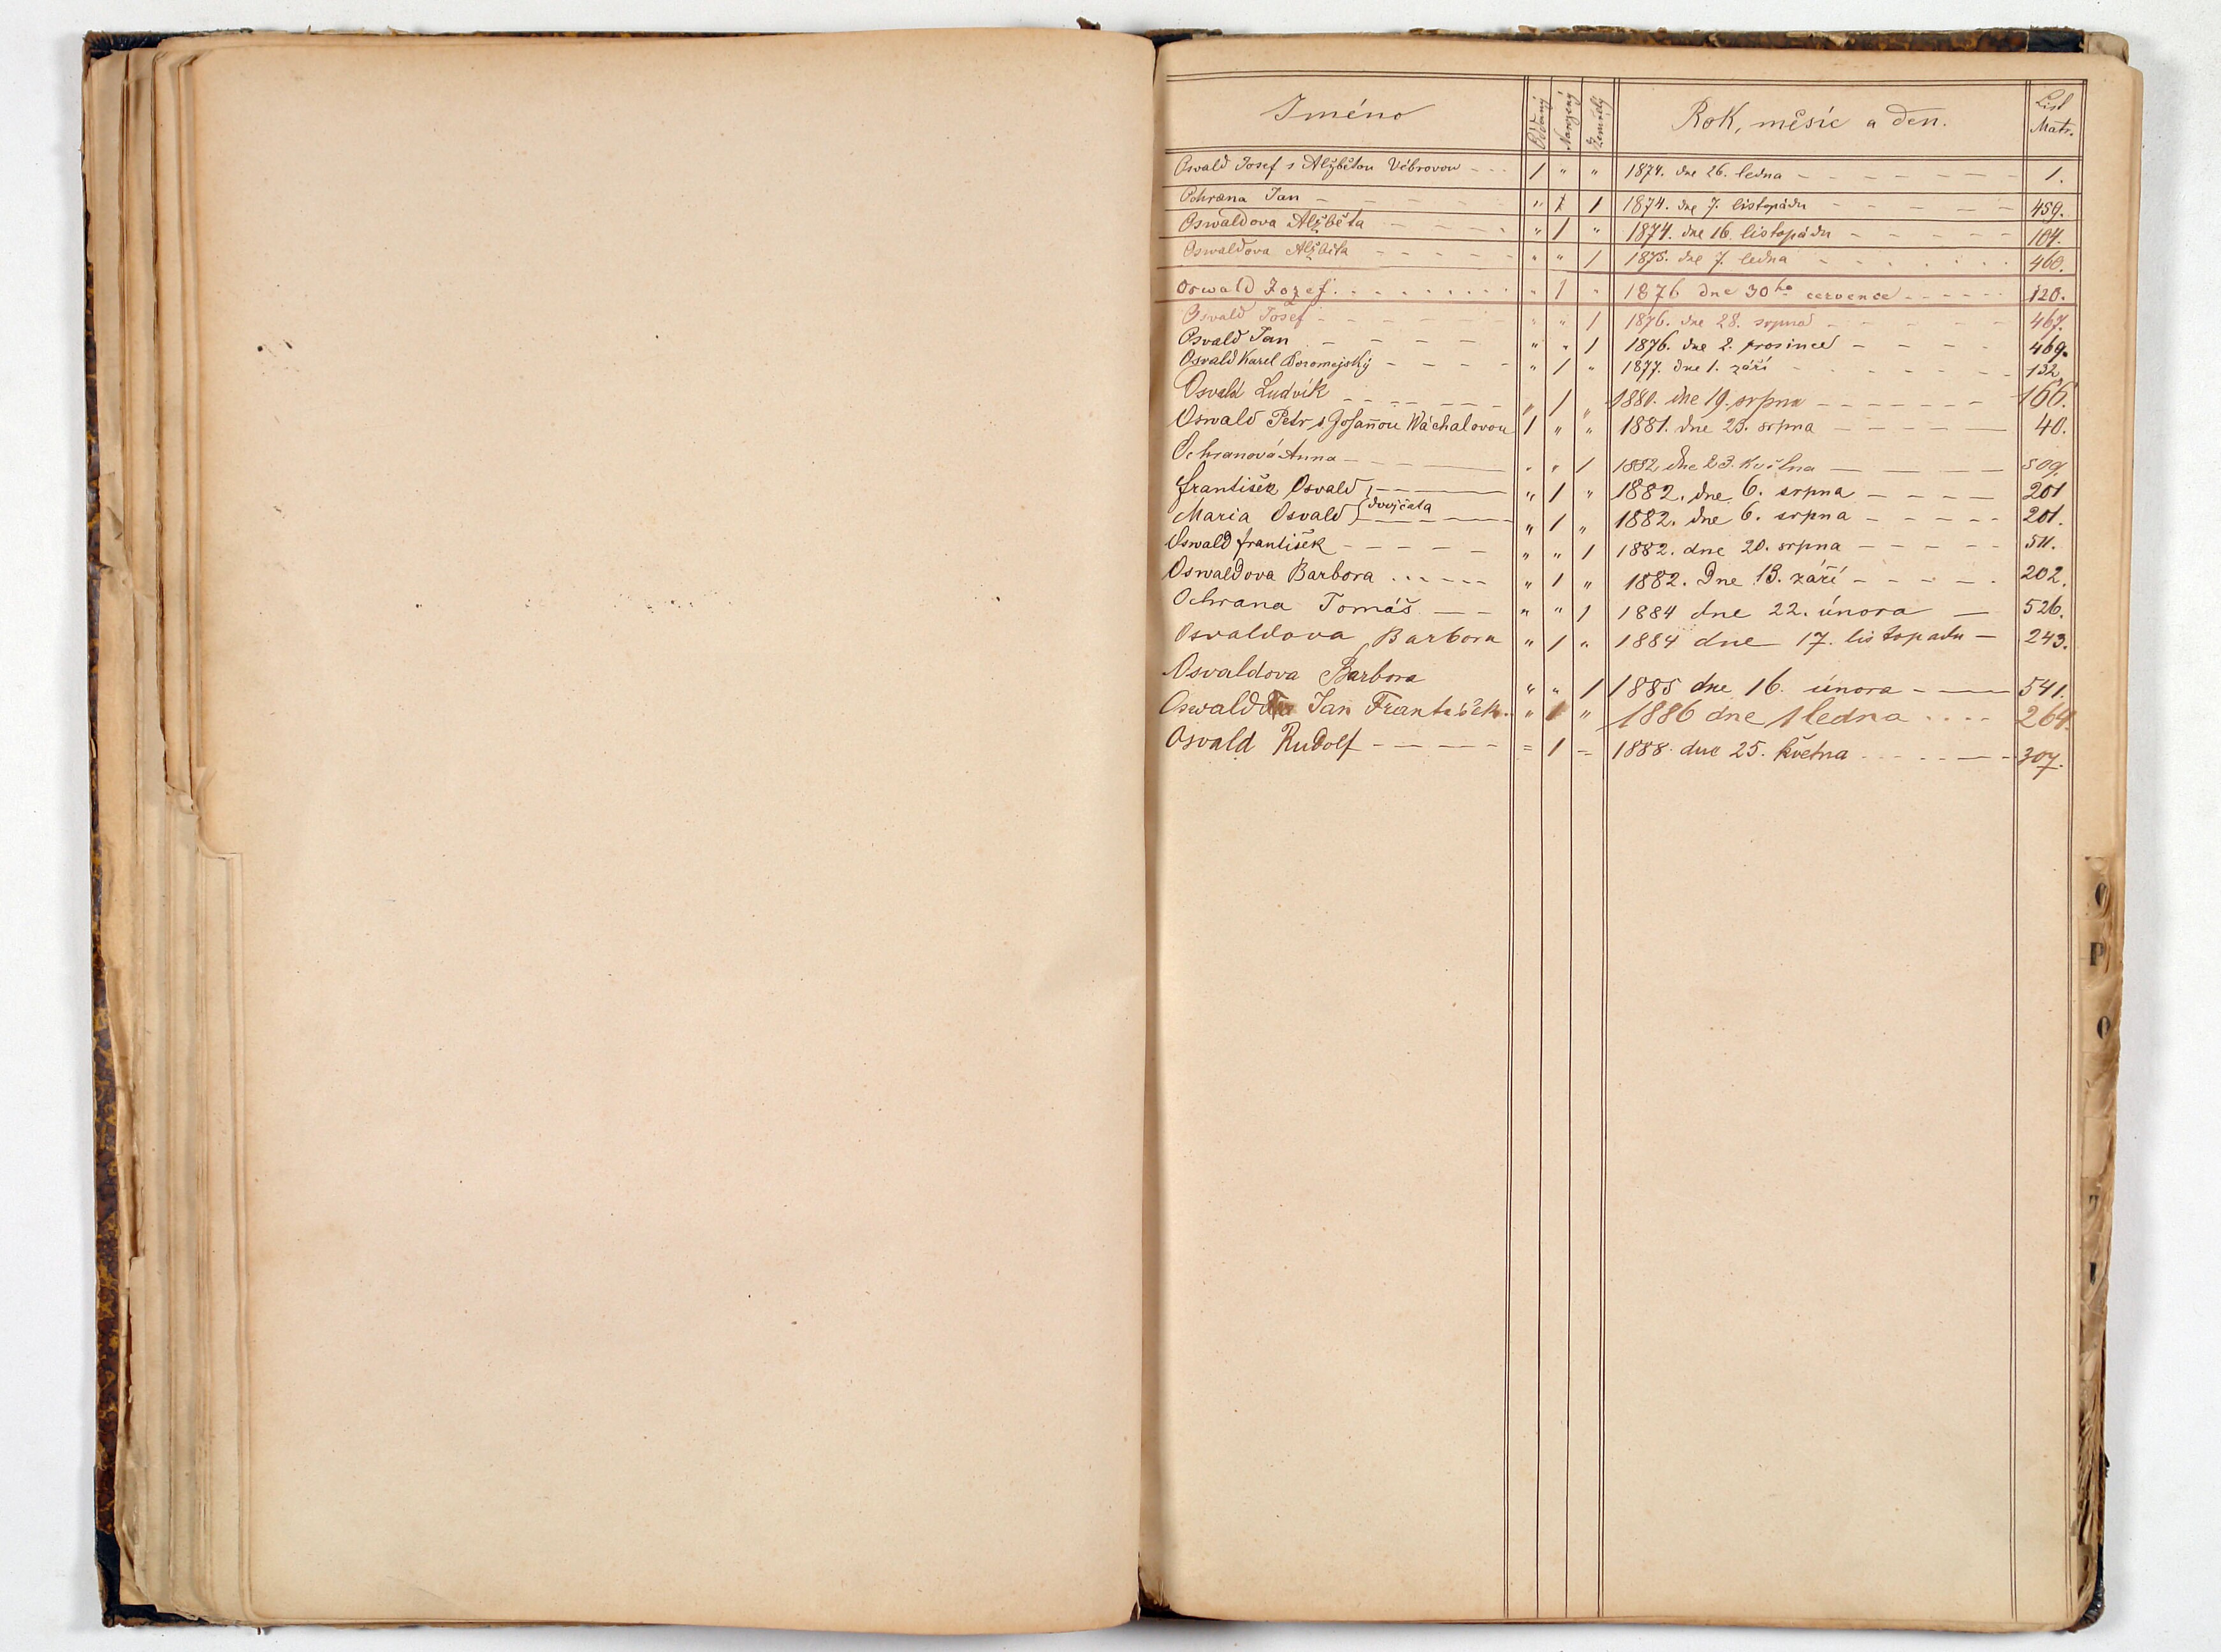 Jméno Oddaný Narozený Zemřelý Rok, měsíc a den. List Matr.
Osvald Josef s Alžbětou Vébrovou - - - 1 " " 1874. dne 26. ledna - - - - - - - 1.
Ochrana Jan - - - - - - " 1 1 1874. dne 7. listopádu - - - - - 459.
Oswaldova Alžběta - - - - - " 1 " 1874. dne 16. listopádu - - - - - 104.
Oswaldova Alžběta - - - - - " " 1 1875. dne 7. ledna - - - - - - 460.
Oswald Jozef. . . . . . . . . " 1 " 1876 dne 30ho cervence - - - - - 120.
Osvald Josef - - - - - - " " 1 1876. dne 28. srpna - - - - - 467.
Osvald Jan - - - - - " " 1 1876. dne 2. prosince - - - - 469.
Osvald Karel Boromejský - - - - " 1 " 1877. dne 1. září - - - - - - 132.
Osvald Ludvík - - - - - - " 1 " 1880. dne 19. srpna - - - - - - 166.
Oswald Petr s Josannou Wáchalovou 1 " " 1881. dne 23. srpna - - - - - 40.
Ochranová Anna - - - - " " 1 1882 dne 23. května - - - - 509.
František Osvald - - - - " 1 " 1882. dne 6. srpna - - - - 201
Maria Osvald } dvojčata - - - - " 1 " 1882. dne 6. srpna - - - - - 201.
Oswald František - - - - - - " " 1 1882. dne 20. srpna - - - - - 511.
Oswaldova Barbora . . . - - - " 1 " 1882. Dne 13. září - - - - - 202.
Ochrana Tomáš - - - " " 1 1884 dne 22. února - 526.
Osvaldova Barbora " 1 " 1884 dne 17. listopadu - 243.
Osvaldova Barbora " " 1 1885 dne 16. února - - - 541.
Oswald Jan Frantešek. " 1 " 1886 dne 1 ledna . . . . 264.
Osvald Rudolf - - - - - = 1 = 1888. dne 25. května - - - - - - 307.
O
P